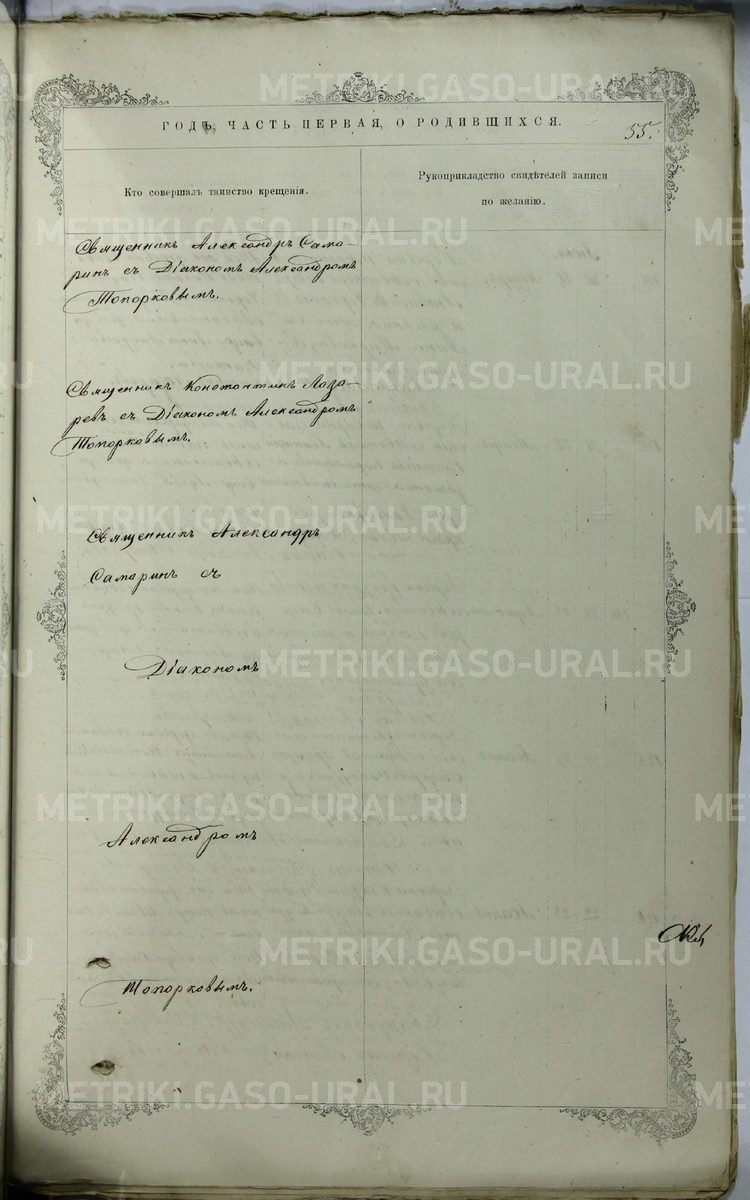 METRIKI.GASO-URAL.RU
ГОДЪ, ЧАСТЬ ПЕРВАЯ, О РОДИВШИХСЯ.
55.
Кто совершалъ таинство крещенія.
Рукоприкладство свидѣтелей записи
по желанію.
Священникъ Александръ Сама-
ринъ съ Діакономъ Александромъ
Топорковымъ.
Священникъ Константинъ Лаза-
ревъ съ Діакономъ Александромъ
Топорковымъ.
Священникъ Александръ
Самаринъ съ
Діакономъ
Александромъ
Топорковымъ.